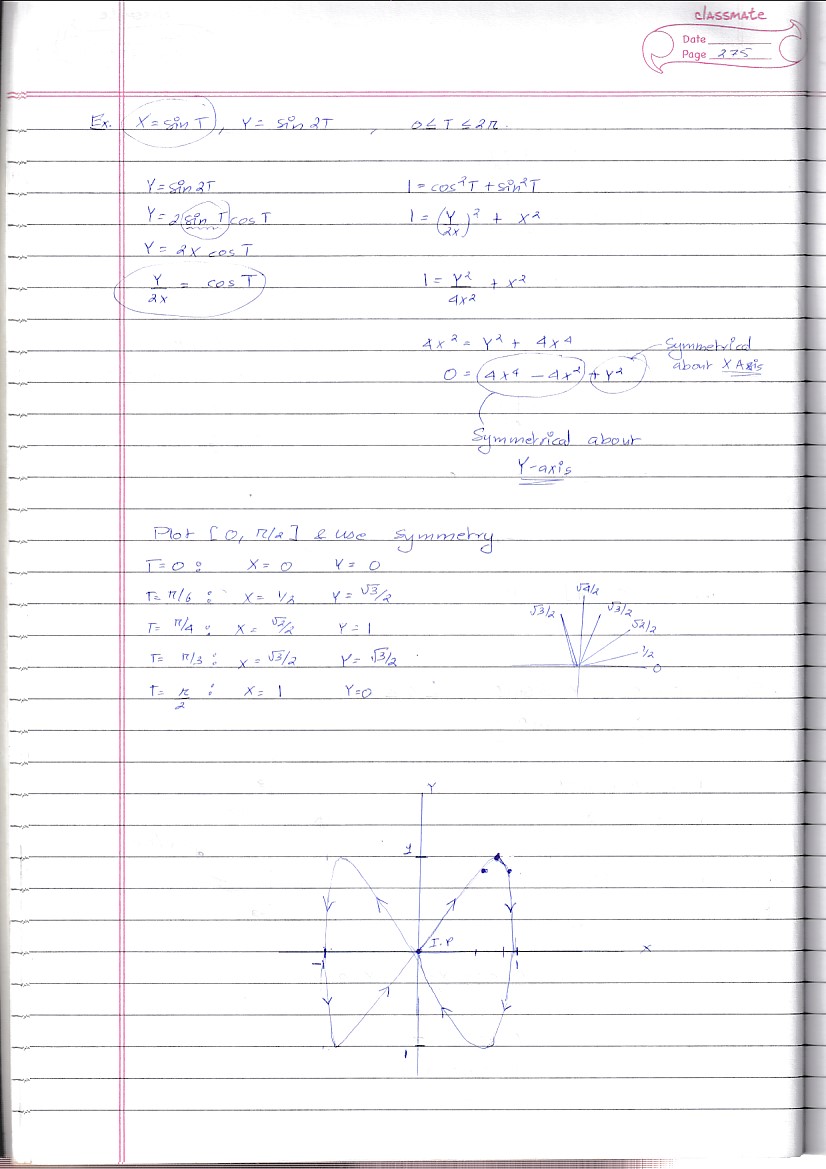 classmate
Date
Page 275
Ex. X = sin T, Y = sin 2T, 0 ≤ T ≤ 2π.
Y = sin 2T
Y = 2 sin T cos T
Y = 2x cos T
Y/2x = cos T
1 = cos²T + sin²T
1 = (Y/2x)² + x²
1 = Y²/4x² + x²
4x² = Y² + 4x⁴
0 = 4x⁴ - 4x² + Y²
Symmetrical
about X Axis
Symmetrical about
Y-axis
Plot [0, π/2] & use symmetry
T = 0 : X = 0 Y = 0
T = π/6 : X = 1/2 Y = √3/2
T = π/4 : X = √2/2 Y = 1
T = π/3 : X = √3/2 Y = √3/2
T = π/2 : X = 1 Y = 0
√4/2
√3/2 √3/2
√2/2
1/2
0
Y
1
I.P
X
-1 1
1